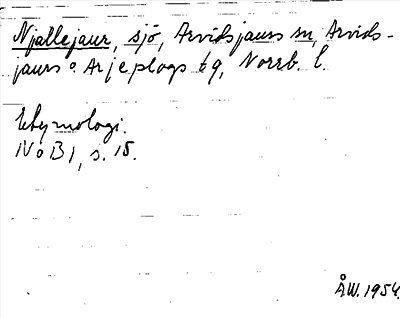 Njallejaur, sjö, Arvidsjaurs sn, Arvids-
jaurs o Arjeplogs tg, Norrb. l.
Etymologi.
NoB 1, s. 15.
ÅW. 1954.